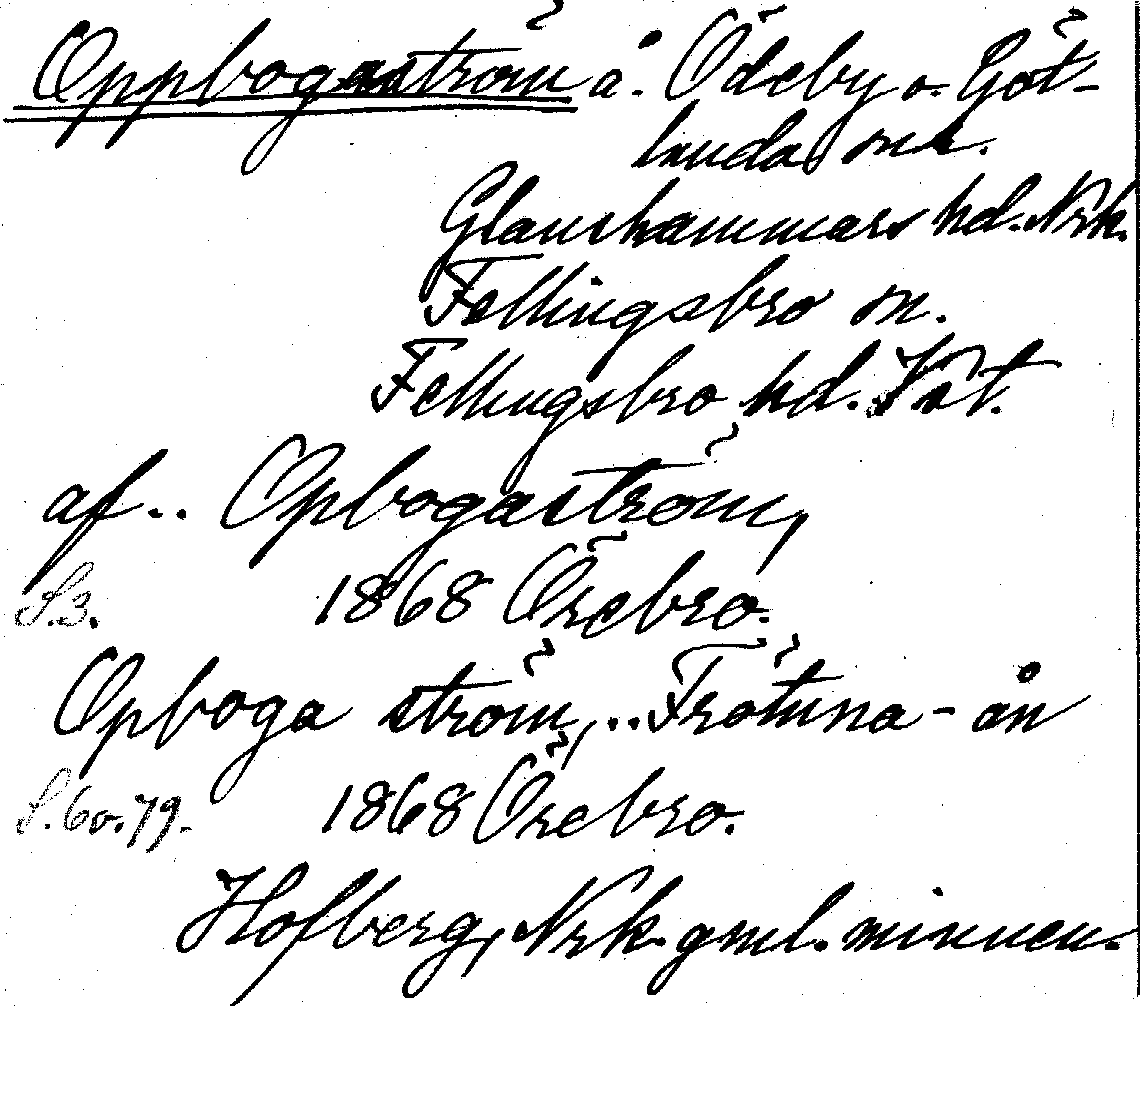 Oppbogaström å. Ödeby o. Göt-
lunda snr.
Glanshammars hd. Nrk.
Fellingsbro sn.
Fellingsbro hd. Vstm.
af.. Opbogaström,
S.3. 1868 Örebro.
Opboga ström,.. Frötuna-ån
S.60.79. 1868 Örebro.
Hofberg, Nrk. gml. minnen.